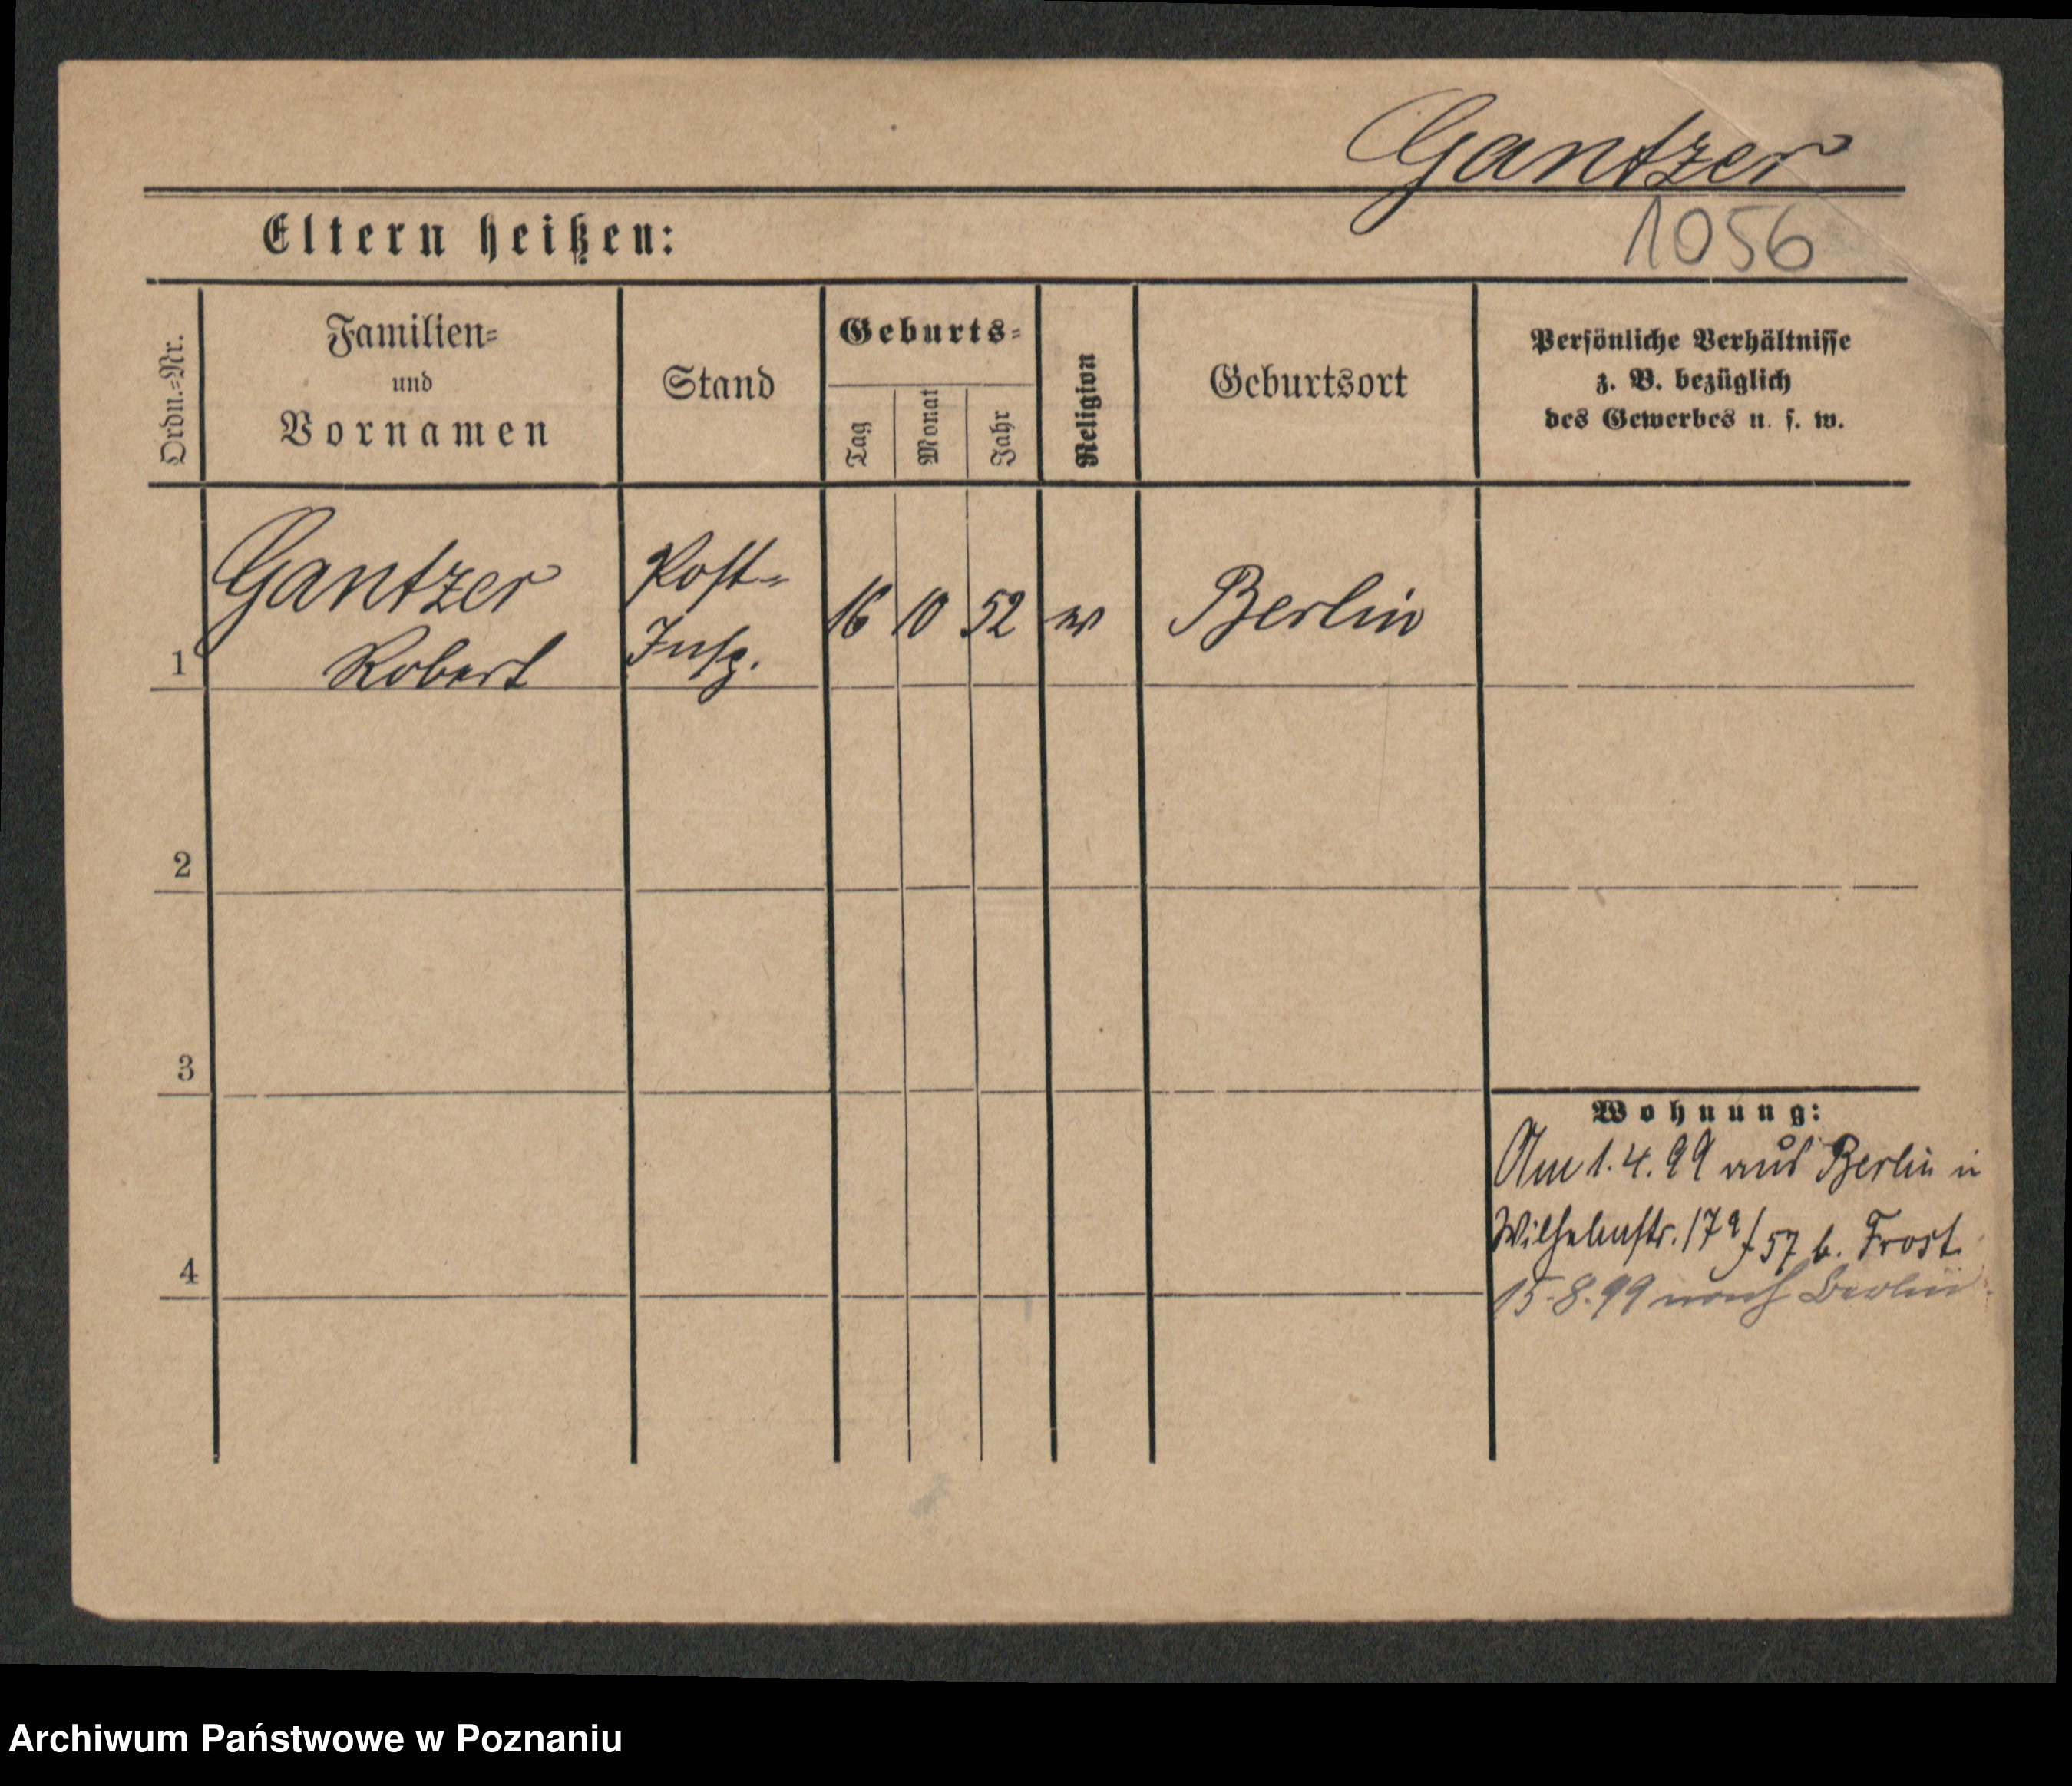 Gantzer
1056
Eltern heißen:
Ordn.=Nr.
Familien=
und
Vornamen
Stand
Geburts=
Tag
Monat
Jahr
Religion
Geburtsort
Persönliche Verhältnisse
z. B. bezüglich
des Gewerbes u. s. w.
1
Gantzer
Robert
Post=
Insp.
16 10 52
Berlin
2
3
4
Wohnung:
Am 1.4.99 aus Berlin in
Wilhelmstr. 57 b. Frost.
15.8.99 nach Berlin.
Archiwum Państwowe w Poznaniu